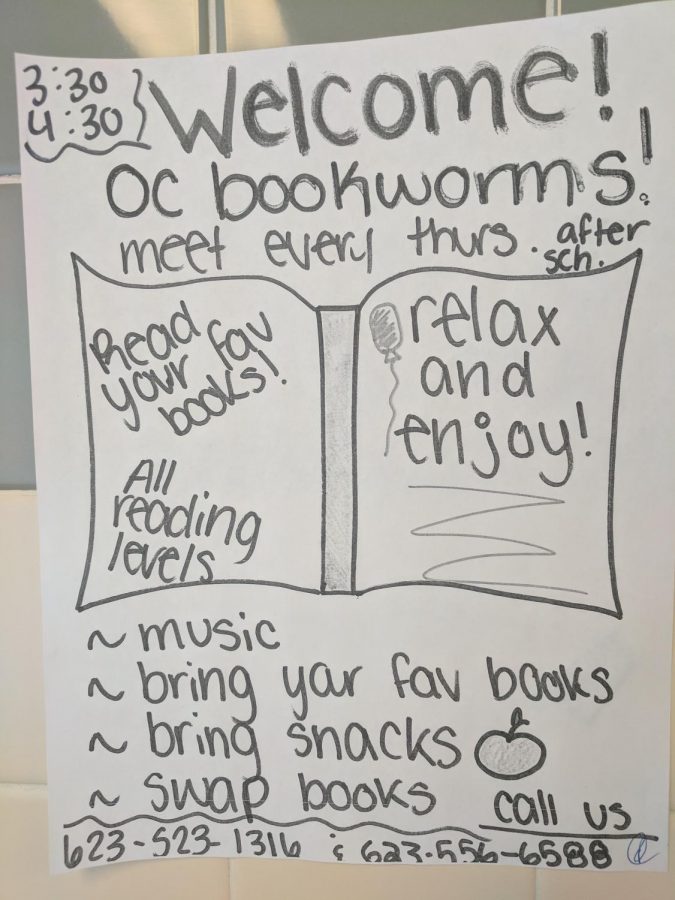 3:30
4:30
Welcome!
OC bookworms!
meet every thurs. after
sch.
Read
your fav
books!
All
reading
levels
relax
and
enjoy!
~ music
~ bring yar fav books
~ bring snacks
~ swap books
call us
623-523-1316 & 623-556-6588